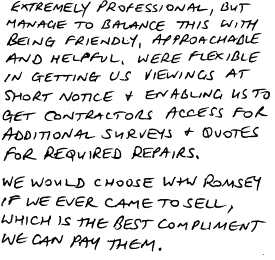 EXTREMELY PROFESSIONAL, BUT
MANAGE TO BALANCE THIS WITH
BEING FRIENDLY, APPROACHABLE
AND HELPFUL. WERE FLEXIBLE
IN GETTING US VIEWINGS AT
SHORT NOTICE + ENABLING US TO
GET CONTRACTORS ACCESS FOR
ADDITIONAL SURVEYS + QUOTES
FOR REQUIRED REPAIRS.
WE WOULD CHOOSE W+W ROMSEY
IF WE EVER CAME TO SELL,
WHICH IS THE BEST COMPLIMENT
WE CAN PAY THEM.